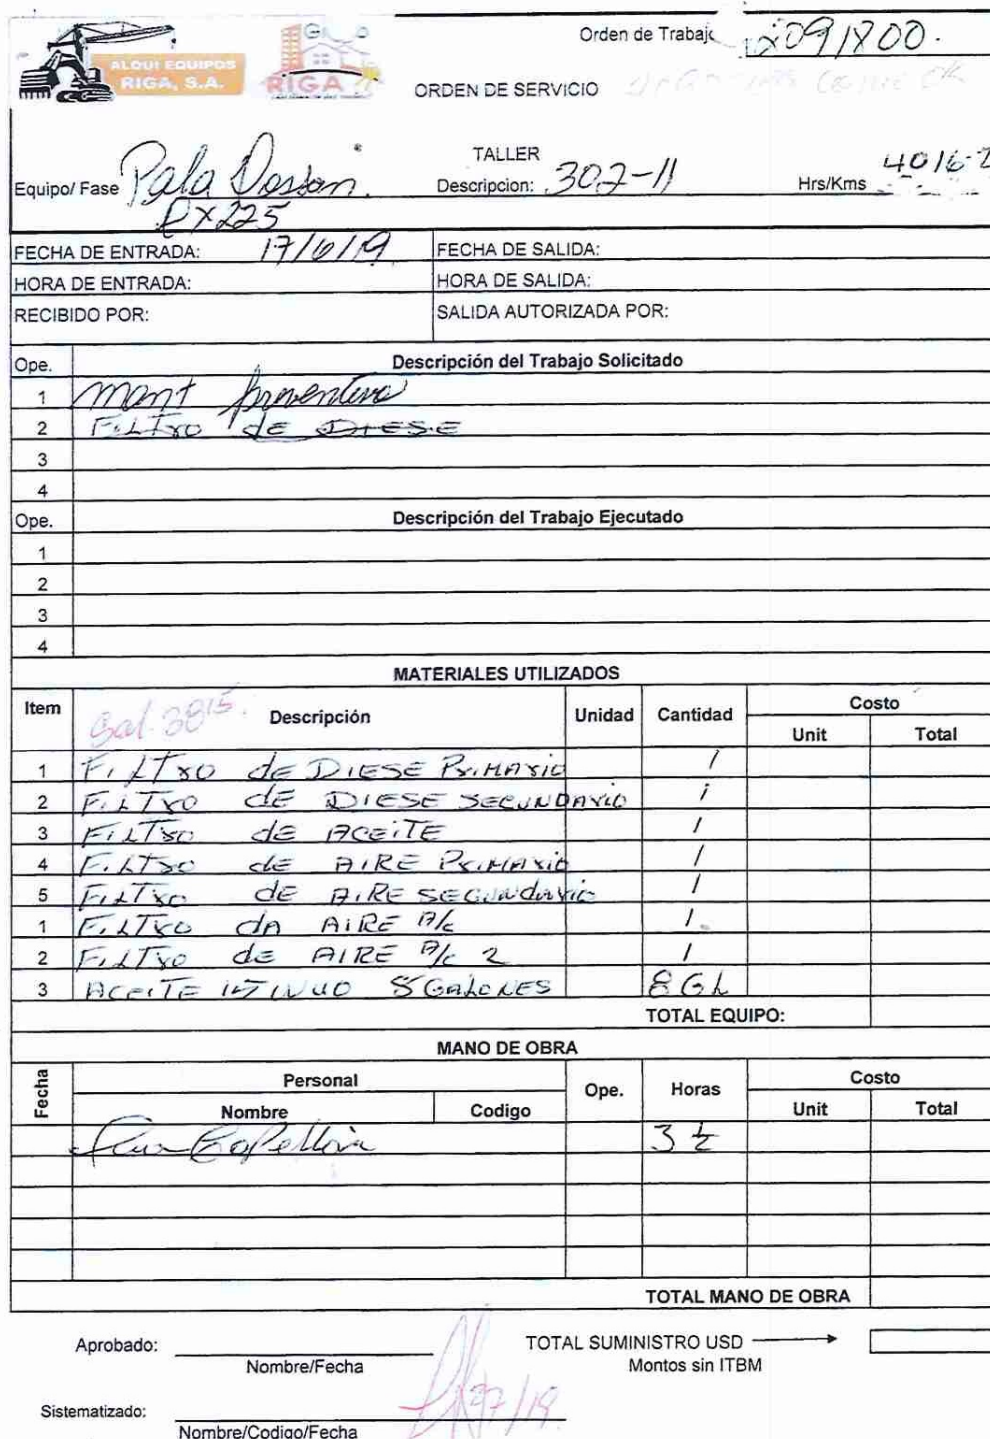 ALQUI EQUIPOS
RIGA, S.A.
RIGA
Orden de Trabajo
091800.
ORDEN DE SERVICIO
TALLER
Equipo/ Fase Pala Dossan
DX225
Descripcion: 302-11
Hrs/Kms 4016-2
FECHA DE ENTRADA: 17/6/19 FECHA DE SALIDA:
HORA DE ENTRADA: HORA DE SALIDA:
RECIBIDO POR: SALIDA AUTORIZADA POR:
Ope. Descripción del Trabajo Solicitado
1 Mant preventivo
2 FiLTro de DiESE
3
4
Ope. Descripción del Trabajo Ejecutado
1
2
3
4
MATERIALES UTILIZADOS
Item Descripción Unidad Cantidad Costo
Unit Total
Sal. 3815.
1 FiLTro de DIESE PriMArio 1
2 FiLTro de DIESE SECUNDArio 1
3 FiLTro de ACEiTE 1
4 FiLTro de AIRE PriMArio 1
5 FiLTro de AiRE SECundario 1
1 FiLTro dA AIRE A/c 1.
2 FiLTro de AIRE A/c 2 1
3 ACEiTE 15W40 8 GALONES 8 GL
TOTAL EQUIPO:
MANO DE OBRA
Fecha Personal Ope. Horas Costo
Nombre Codigo Unit Total
3 ½
TOTAL MANO DE OBRA
Aprobado:
Nombre/Fecha
TOTAL SUMINISTRO USD
Montos sin ITBM
Sistematizado:
Nombre/Codigo/Fecha